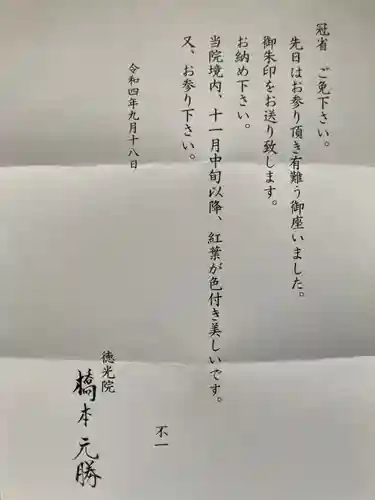 冠省　ご免下さい。
先日はお参り頂き有難う御座いました。
御朱印をお送り致します。
お納め下さい。
当院境内、十一月中旬以降、紅葉が色付き美しいです。
又、お参り下さい。
不一
令和四年九月十八日
徳光院
橋本元勝